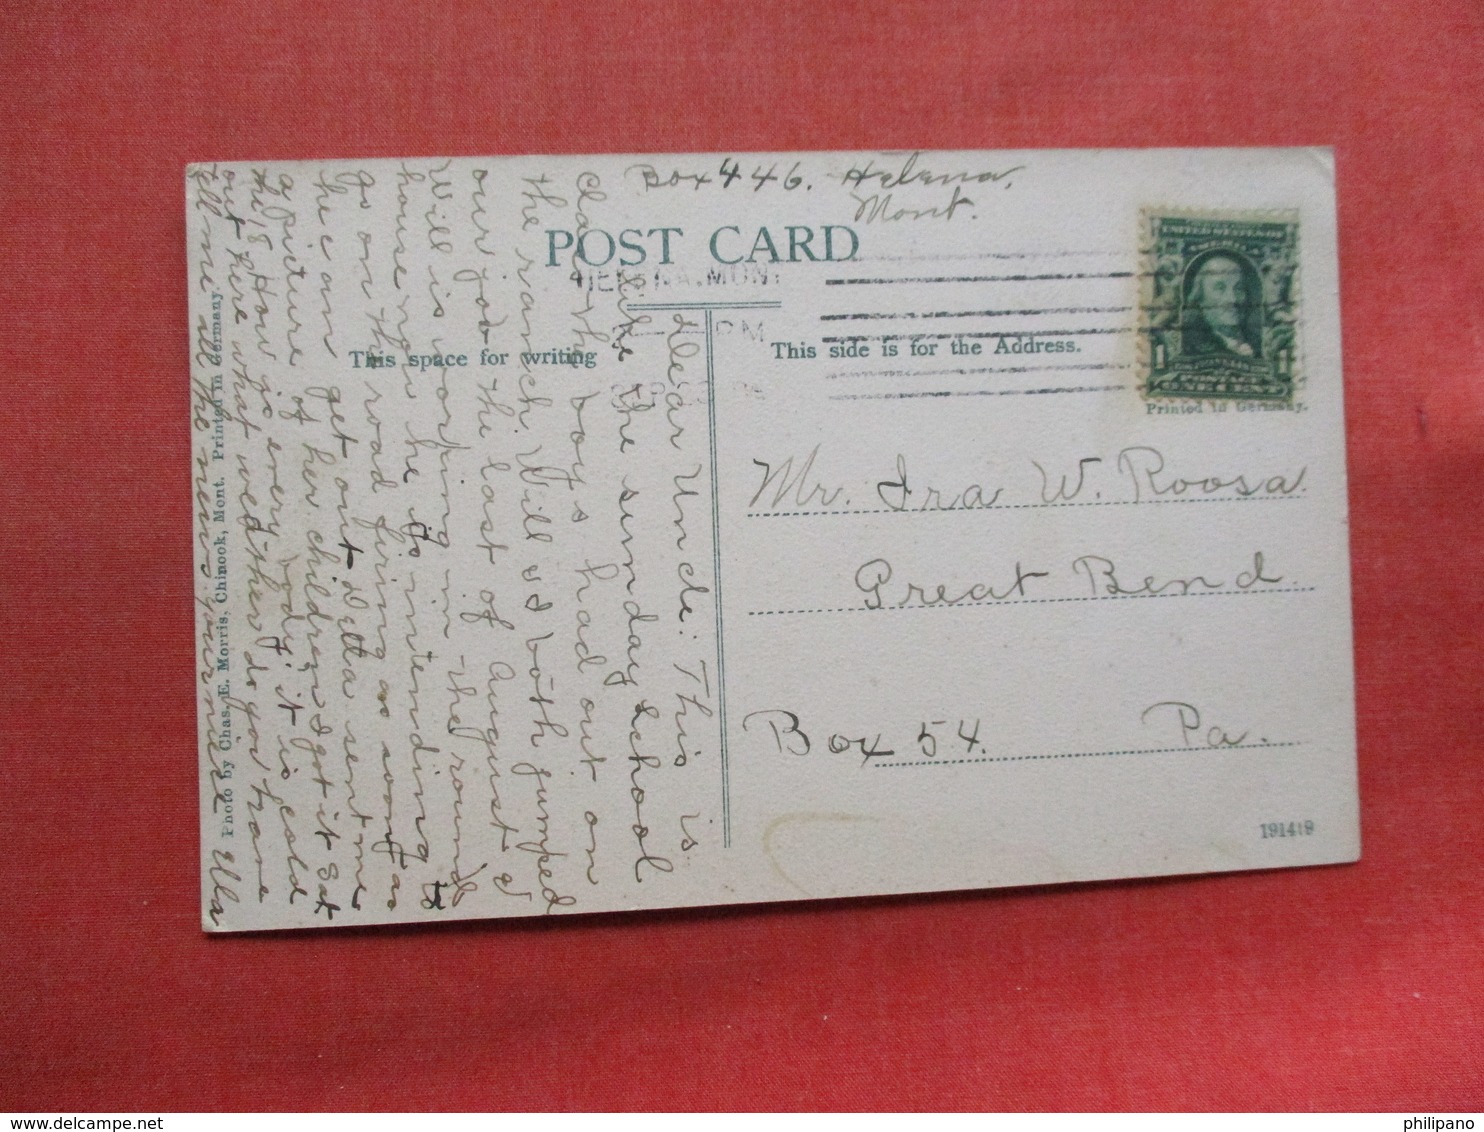 Box 446. Helena,
Mont.
POST CARD
HELENA, MONT
PM
This space for writing
This side is for the Address.
UNITED STATES OF AMERICA
1 1
Printed in Germany.
Mr. Ira W. Roosa
Great Bend
Box 54. Pa.
19141 9
Dear Uncle: This is
like the sunday school
class the boys had out on
the ranch. Will & I both jumped
our job the last of August &
Will is working in the round
house now he is intending to
go on the road firing as soon as
he can get out Detta sent me
a picture of her children I got it Sat
the 18 How is every body; it is cold
out here what weather do you have
tell me all the news your niece Ula
Photo by Chas. E. Morris, Chinook, Mont. Printed in Germany.
www.delcampe.net
philipano